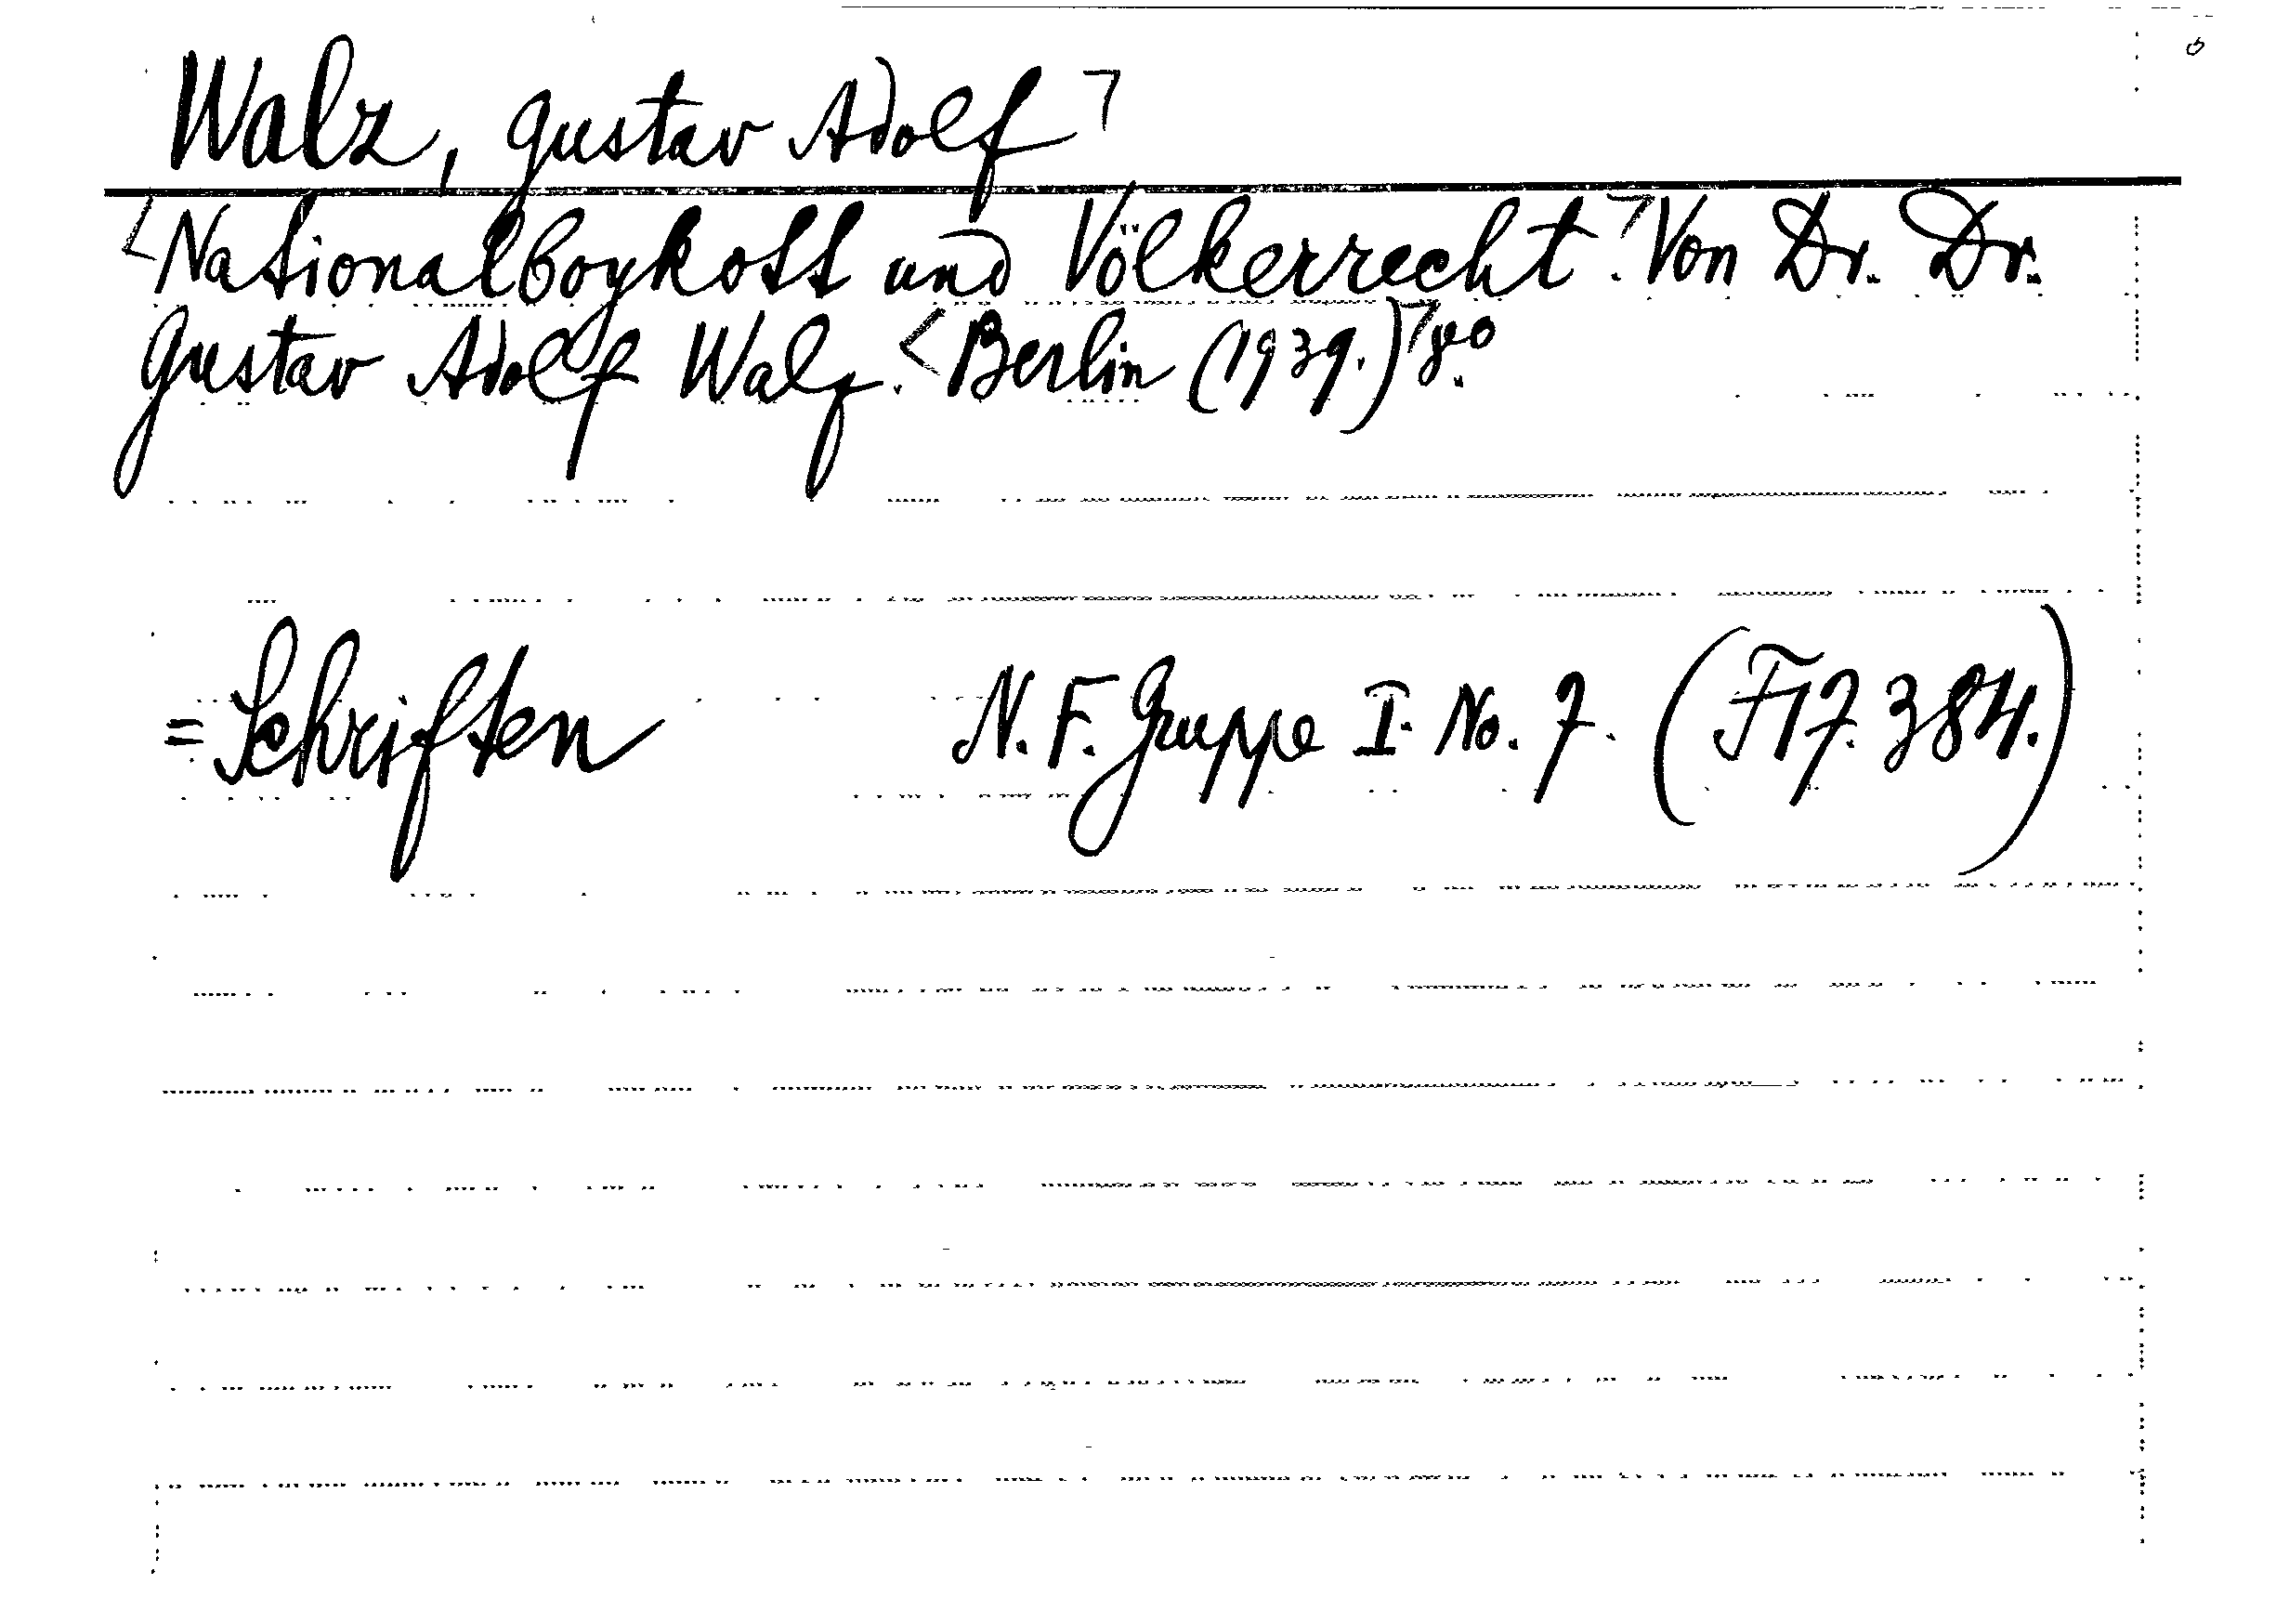 Walz, Gustav Adolf
Nationalboykott und Völkerrecht. Von Dr. Dr.
Gustav Adolf Walz. Berlin (1939.) 8°.
= Schriften N. F. Gruppe I. No. 7. (F17.384.)